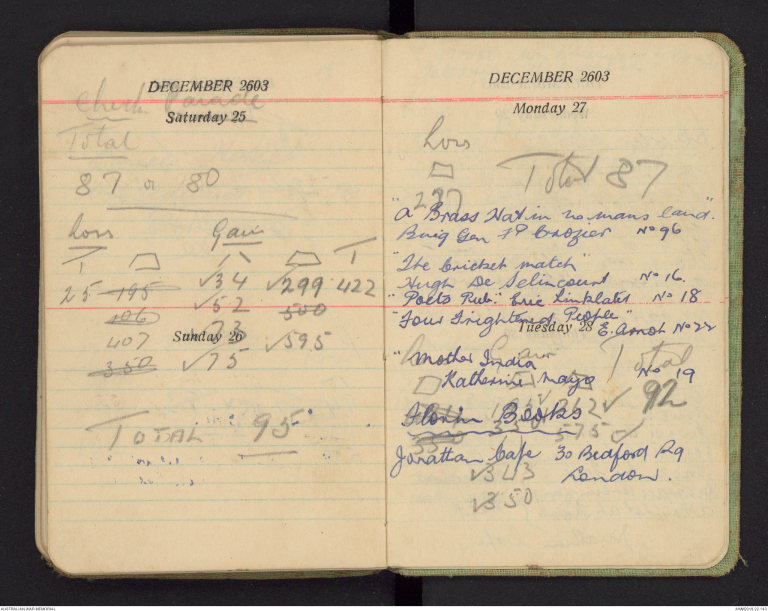 DECEMBER 2603
Check Parade
Saturday 25
Total
87 or 80
Loss Gain
T T
25 195 √34 √299 422
106 √52 500
407 √73
Sunday 26
350 √75 √595
TOTAL 95
DECEMBER 2603
Monday 27
Loss
Total 87
297
"A Brass Hat in no mans land".
Brig Gen F P Crozier No 96
"The Cricket match"
Hugh De Selincourt No 16.
"Poets Pub" Eric Linklater No 18
"Four Frightened People"
Tuesday 28 E. Arnot No 22
Gain Total
"Mother India
Katherine Mayo No 19
92
262✓
Books
350 575✓
Jonathan Cape 30 Bedford Rq
√343 London.
√350
AUSTRALIAN WAR MEMORIAL